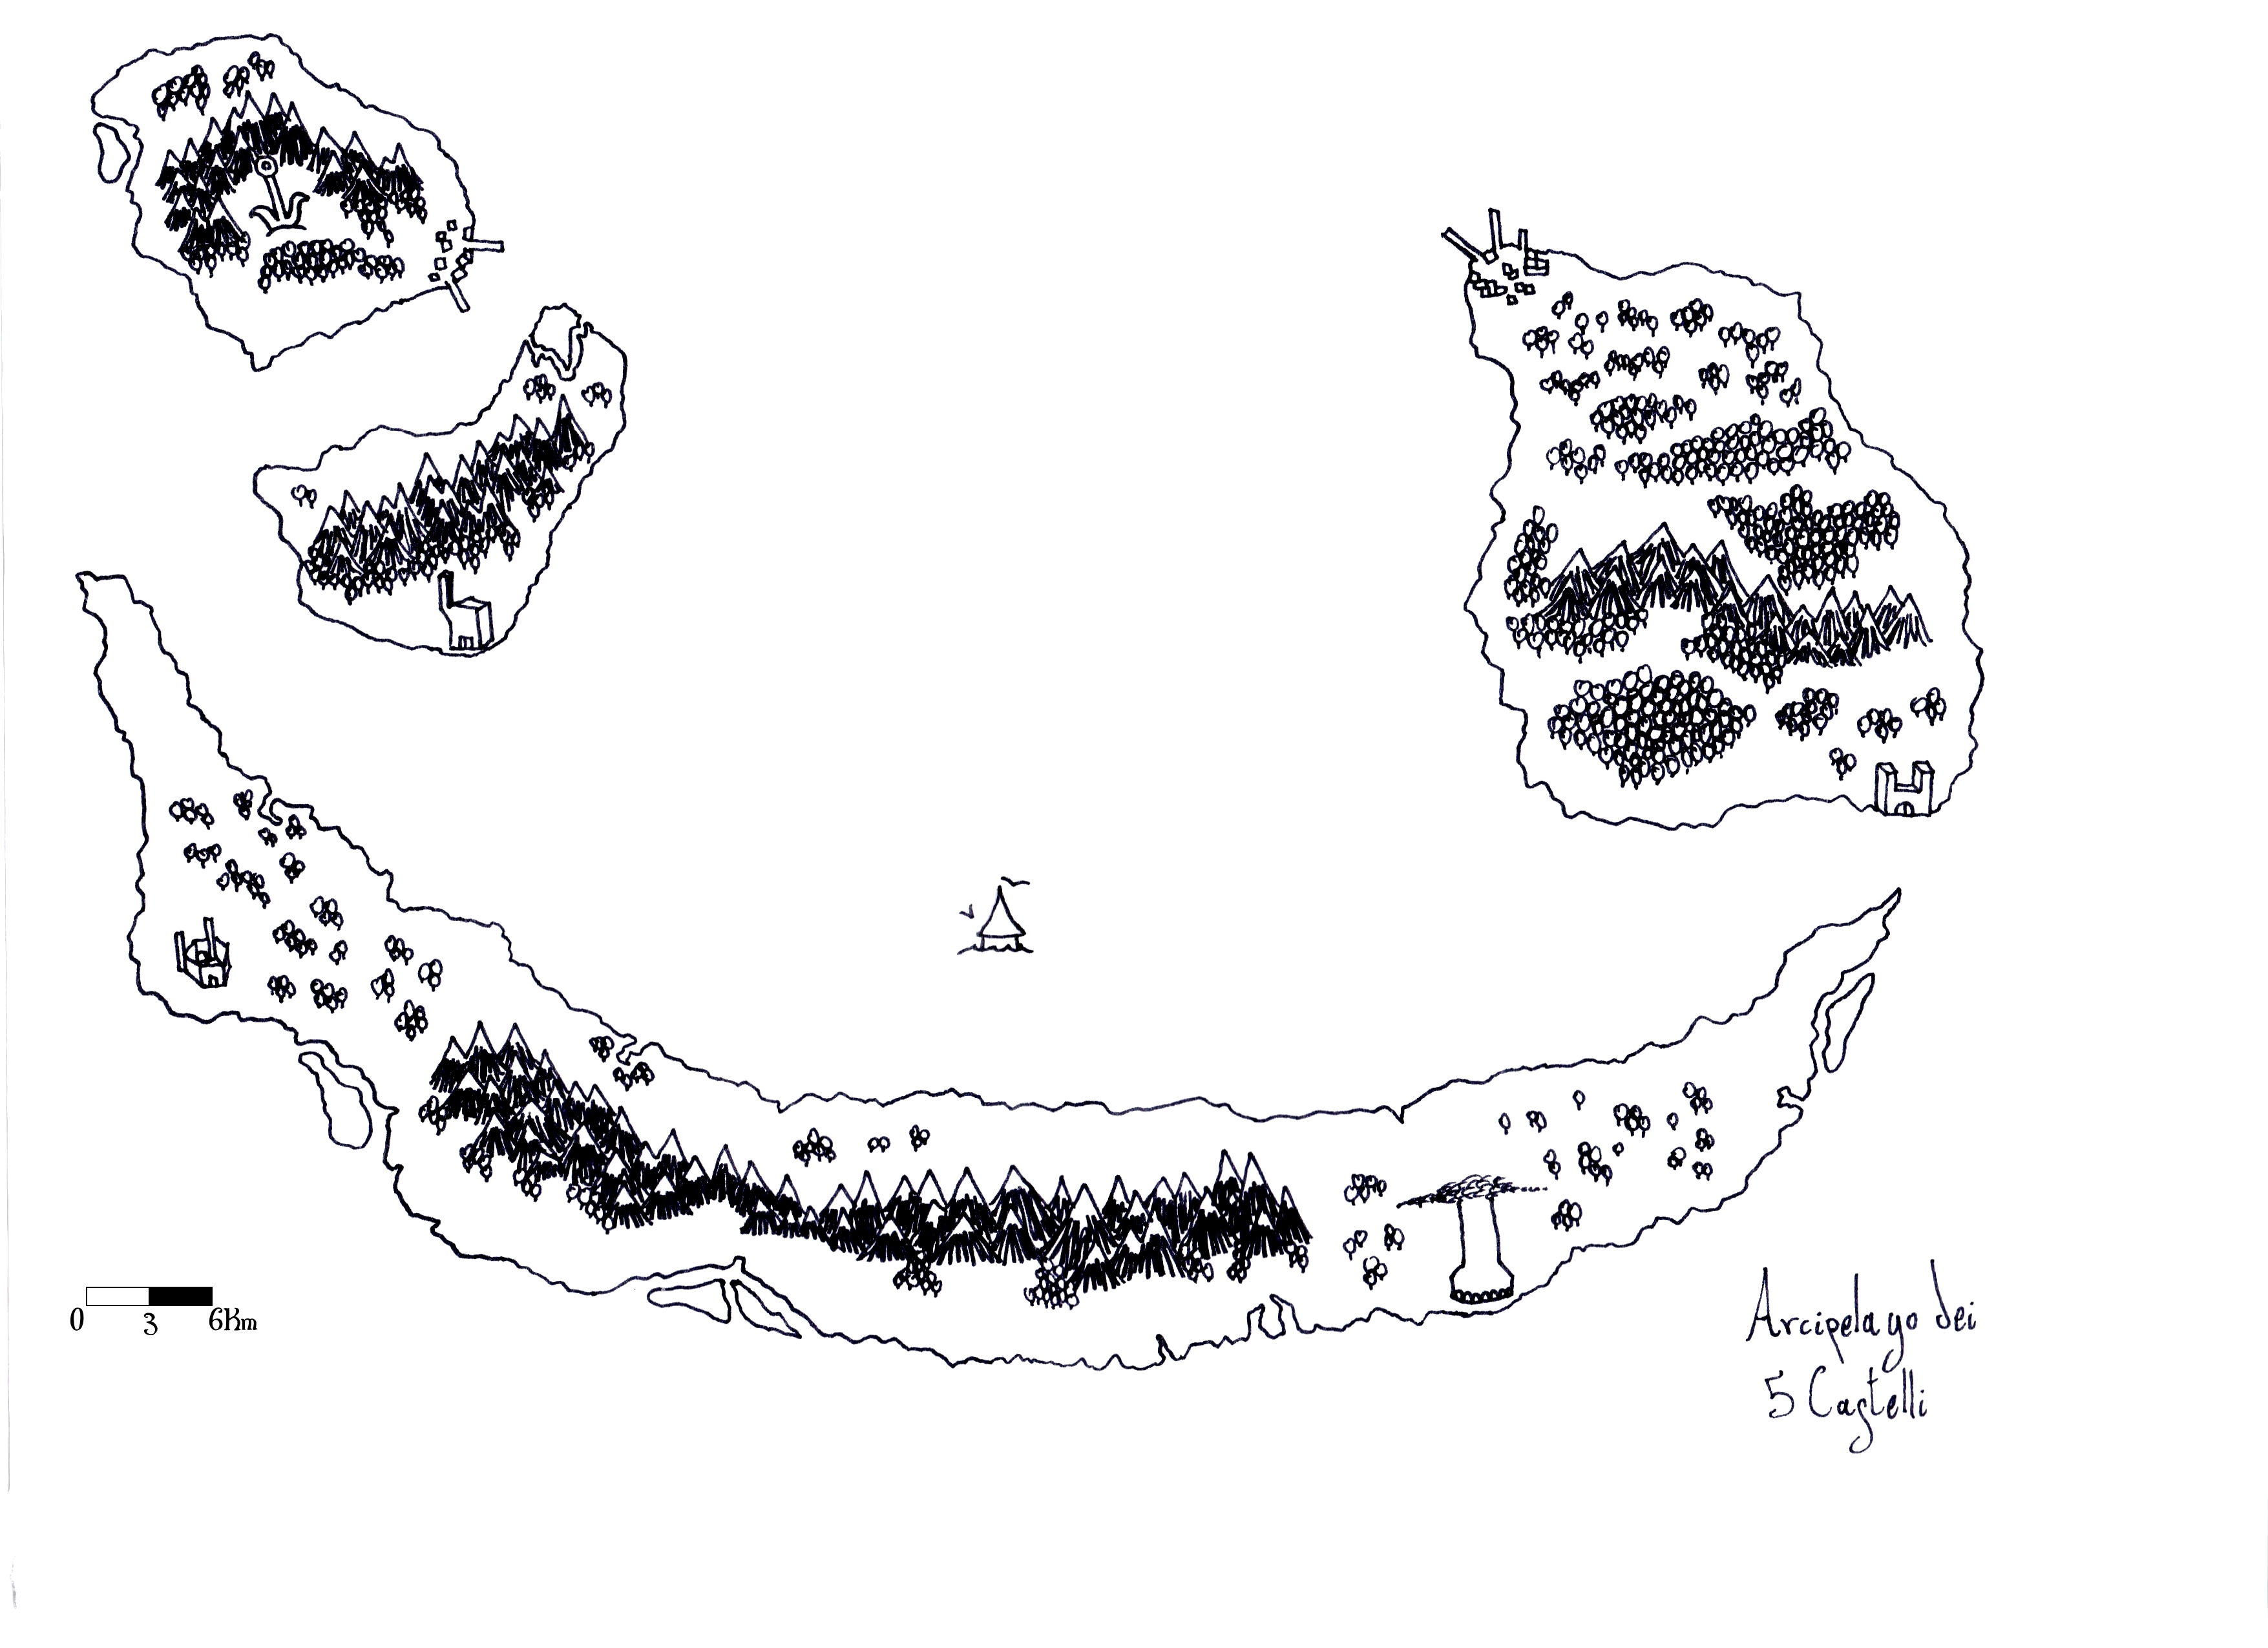 0 3 6Km
Arcipelago dei
5 Castelli